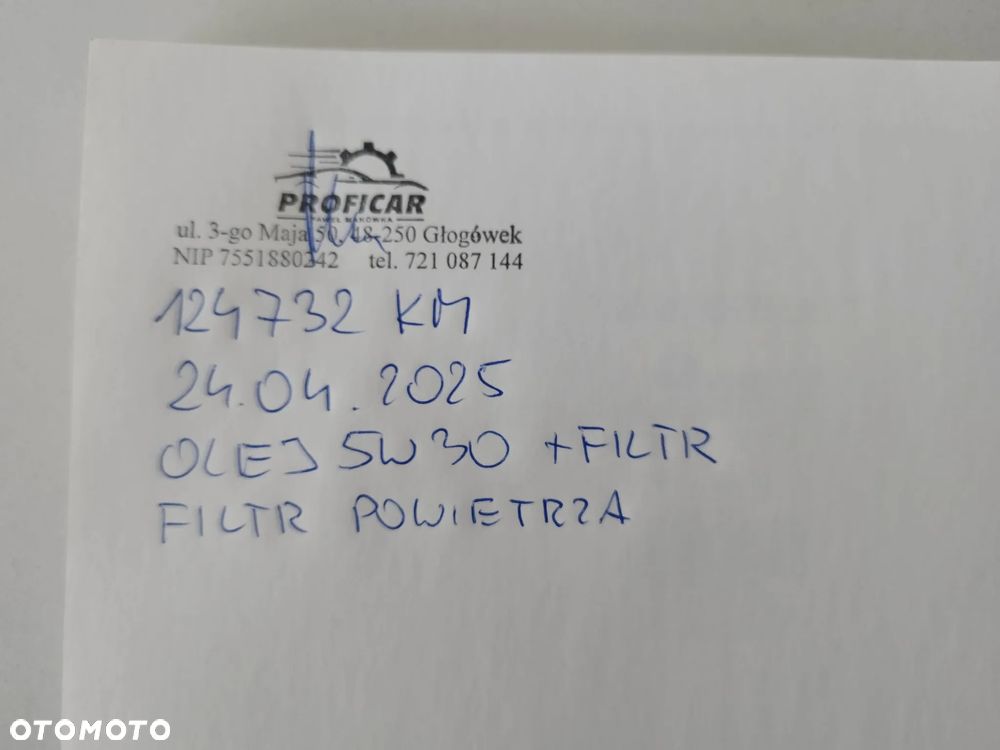 PROFICAR
PAWEŁ MAKÓWKA
ul. 3-go Maja 50, 48-250 Głogówek
NIP 7551880242 tel. 721 087 144
124732 KM
24.04.2025
OLEJ 5W30 + FILTR
FILTR POWIETRZA
OTOMOTO